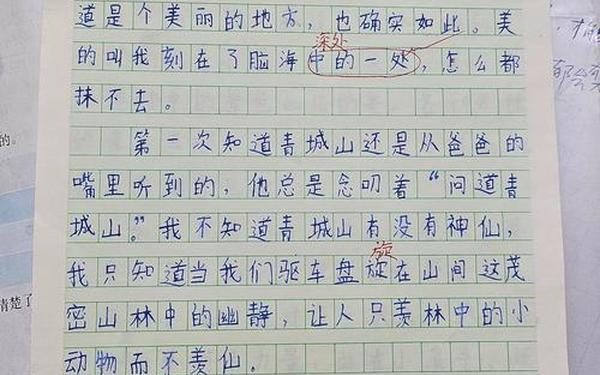 道是个美丽的地方，也确实如此。美
深处
的叫我刻在了脑海中的一处，怎么都
抹不去。
第一次知道青城山还是从爸爸的
嘴里听到的，他总是念叨着“问道青
城山。”我不知道青城山有没有神仙，
旋
我只知道当我们驱车盘旋在山间这茂
密山林中的幽静，让人只羡林中的小
动物而不羡仙。
的。
清楚了